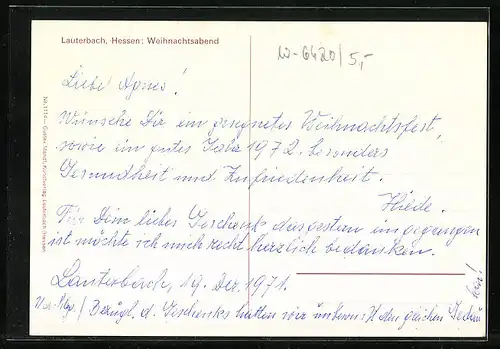 Lauterbach, Hessen; Weihnachtsabend
W-6420/5,-
Liebe Agnes!
Wünsche Dir ein gesegnetes Weihnachtsfest,
sowie ein gutes Jahr 1972. besonders
Gesundheit und Zufriedenheit.
Hilde.
Für Dein liebes Geschenk, das gestern eingegangen
ist möchte ich mich recht herzlich bedanken.
Lauterbach, 19. Dez. 1971.
/ Bezügl. d. Geschenks hatten wir den gleichen Gedan
ken!